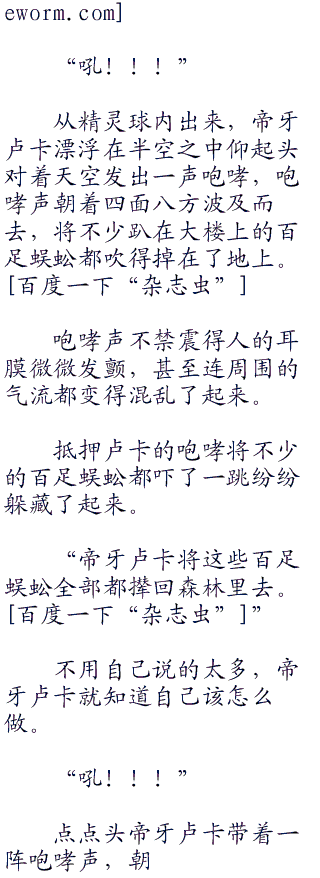 eworm.com]
“吼！！！”
从精灵球内出来，帝牙
卢卡漂浮在半空之中仰起头
对着天空发出一声咆哮，咆
哮声朝着四面八方波及而
去，将不少趴在大楼上的百
足蜈蚣都吹得掉在了地上。
[百度一下“杂志虫”]
咆哮声不禁震得人的耳
膜微微发颤，甚至连周围的
气流都变得混乱了起来。
抵押卢卡的咆哮将不少
的百足蜈蚣都吓了一跳纷纷
躲藏了起来。
“帝牙卢卡将这些百足
蜈蚣全部都撵回森林里去。
[百度一下“杂志虫”]”
不用自己说的太多，帝
牙卢卡就知道自己该怎么
做。
“吼！！！”
点点头帝牙卢卡带着一
阵咆哮声，朝